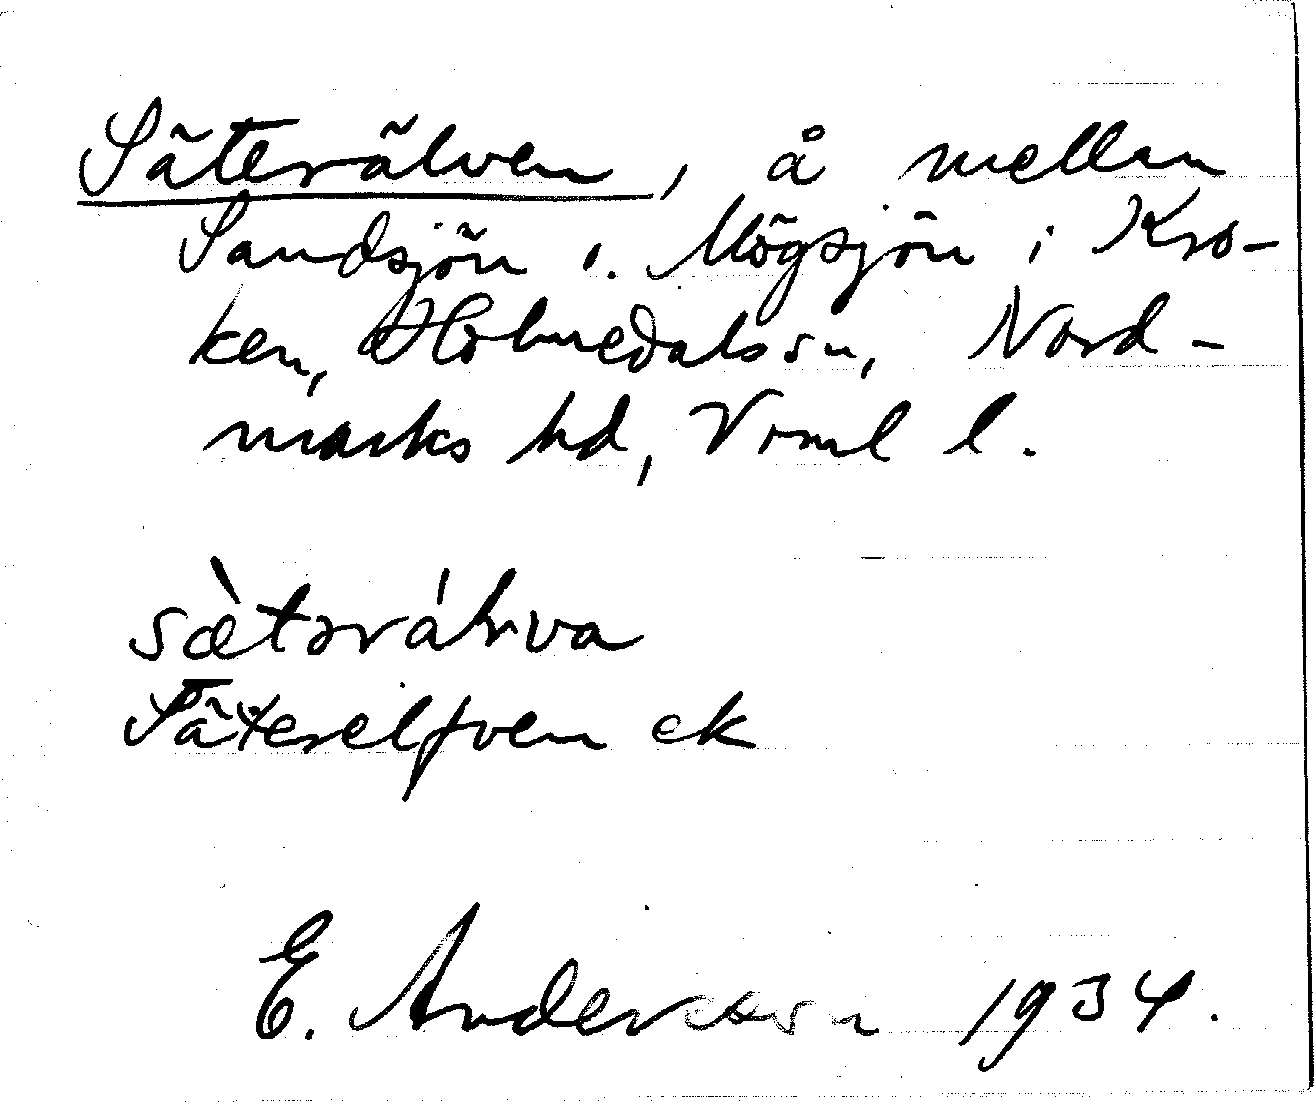 Säterälven, å mellan
Sandsjön o. Mögsjön i Kro-
ken, Holmedals sn, Nord-
marks hd, Vrml l.
sæ̀tər
Säterelfven ek
E. Andersson 1934.